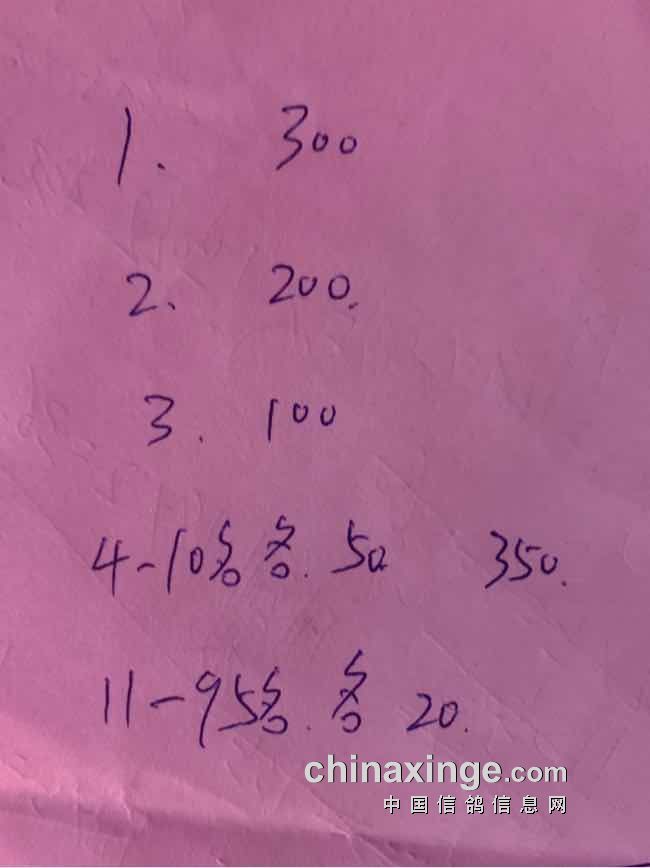 1. 300
2. 200.
3. 100
4-10名各. 50 350.
11-95名. 各 20.
chinaxinge.com
中国信鸽信息网